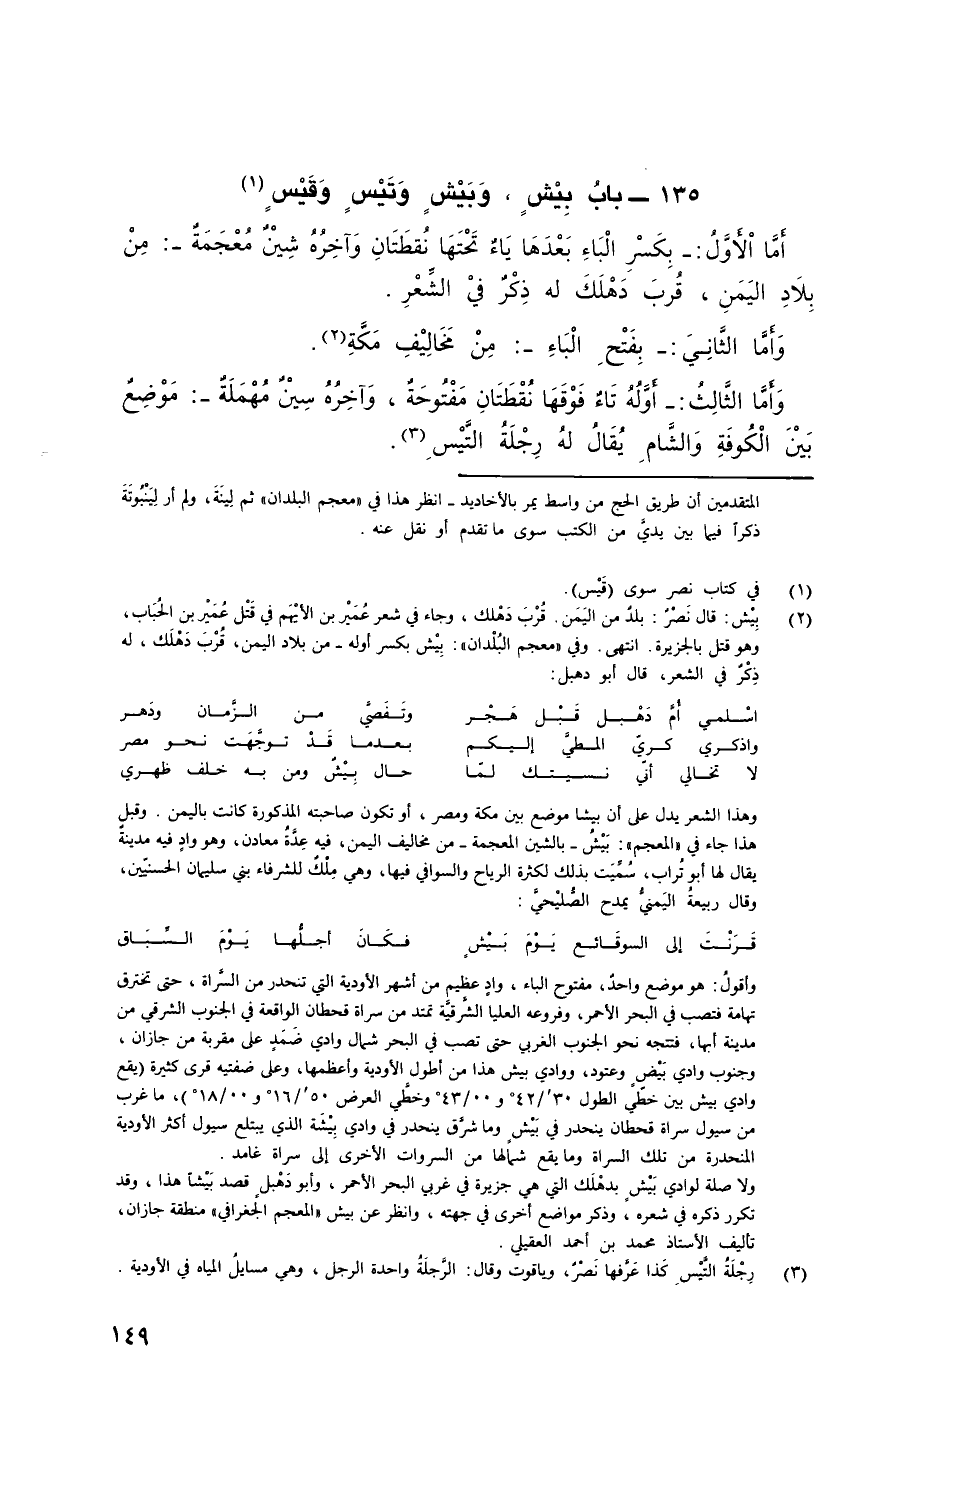 ١٣٥ ــ بابُ بِيْشٍ ، وَبَيْشٍ وَتَيْسٍ وَقَيْسٍ (١)
أَمَّا ٱلْأَوَّلُ :ـ بِكَسْرِ الْبَاءِ بَعْدَهَا يَاءٌ تَحْتَهَا نُقطَتَانِ وَآخِرُهُ شِينٌ مُعْجَمَةٌ ـ: مِنْ
بِلَادِ اليَمَنِ ، قُربَ دَهْلَكَ له ذِكْرٌ فيْ الشِّعْرِ .
وَأَمَّا الثَّانِيَ :ـ بِفَتْحِ الْبَاءِ ـ: مِنْ مَخَالِيْفِ مَكَّةِ(٢).
وَأَمَّا الثَّالِثُ :ـ أَوَّلُهُ تَاءٌ فَوْقَهَا نُقْطَتَانِ مَفْتُوحَةٌ ، وَآخِرُهُ سِينٌ مُهْمَلَةٌ ـ: مَوْضِعٌ
بَيْنَ الْكُوفَةِ وَالشَّامِ يُقَالُ لهُ رِجْلَةُ التَّيْسِ(٣).
المتقدمين أن طريق الحج من واسط يمر بالأخاديد ـ انظر هذا في «معجم البلدان» ثم لِينَةَ، ولم أر لِيَنْبُوتَةَ
ذكراً فيما بين يديَّ من الكتب سوى ما تقدم أو نقل عنه .
(١) في كتاب نصر سوى (قَيْس).
(٢) بِيْش: قال نَصْرٌ : بلدٌ من اليَمَن. قُرْبَ دَهْلك ، وجاء في شعر عُمَيْر بن الأيْهَم في قَتْل عُمَيْر بن الحُبَاب،
وهو قتل بالجزيرة. انتهى. وفي «معجم البُلْدان»: بِيْش بكسر أوله ـ من بلاد اليمن، قُرْبَ دَهْلَك ، له
ذِكْرٌ في الشعر، قال أبو دهبل:
اسْلمي أُمَّ دَهْبل قَبْل هَجْر وتَقَصٍّ من الزَّمان ودَهر
واذكري كريّ المطيَّ إليكم بعدما قَدْ توجَّهَت نحو مصر
لا تخالي أنّي نسيتك لمّا حال بِيْشٌ ومن به خلف ظهري
وهذا الشعر يدل على أن بيشا موضع بين مكة ومصر ، أو تكون صاحبته المذكورة كانت باليمن . وقبل
هذا جاء في «المعجم»: بَيْشُ ـ بالشين المعجمة ـ من مخاليف اليمن، فيه عِدَّةُ معادن، وهو وادٍ فيه مدينةٌ
يقال لها أبو تُراب، سُمِّيَت بذلك لكثرة الرياح والسوافي فيها، وهي مِلْكٌ للشرفاء بني سليمان الحسنيّين،
وقال ربيعةُ اليَمنيُّ يمدح الصُّلَيْحيَّ :
قَرَنْتَ إلى الوقَائع يَوْمَ بَيْشٍ فكَانَ أجلُّها يَوْمَ السِّبَاق
وأقولُ: هو موضع واحدٌ، مفتوح الباء ، وادٍ عظيم من أشهر الأودية التي تنحدر من السَّراة ، حتى تخترق
تهامة فتصب في البحر الأحمر، وفروعه العليا الشرقيَّة تمتد من سراة قحطان الواقعة في الجنوب الشرقي من
مدينة أبها، فتتجه نحو الجنوب الغربي حتى تصب في البحر شمال وادي ضَمَدٍ على مقربة من جازان ،
وجنوب وادي بَيْضٍ وعتود، ووادي بيش هذا من أطول الأودية وأعظمها، وعلى ضفتيه قرى كثيرة (يقع
وادي بيش بين خطّي الطول ٣٠َ/٤٢° و ٠٠َ/٤٣° وخطَّي العرض ٥٠َ/١٦° و ٠٠َ/١٨°)، ما غرب
من سيول سراة قحطان ينحدر في بَيْشٍ وما شرَّق ينحدر في وادي بِيْشَة الذي يبتلع سيول أكثر الأودية
المنحدرة من تلك السراة وما يقع شمالها من السروات الأخرى إلى سراة غامد .
ولا صلة لوادي بَيْشٍ بدهْلَك التي هي جزيرة في غربي البحر الأحمر ، وأبو دَهْبلٍ قصد بَيْشاً هذا ، وقد
تكرر ذكره في شعره ، وذكر مواضع أخرى في جهته ، وانظر عن بيش «المعجم الجغرافي» منطقة جازان،
تأليف الأستاذ محمد بن أحمد العقيلي .
(٣) رِجْلَةُ التَّيْس كَذا عَرَّفها نَصْرٌ، وياقوت وقال: الرِّجلَةُ واحدة الرجل ، وهي مسايلُ المياه في الأودية .
١٤٩